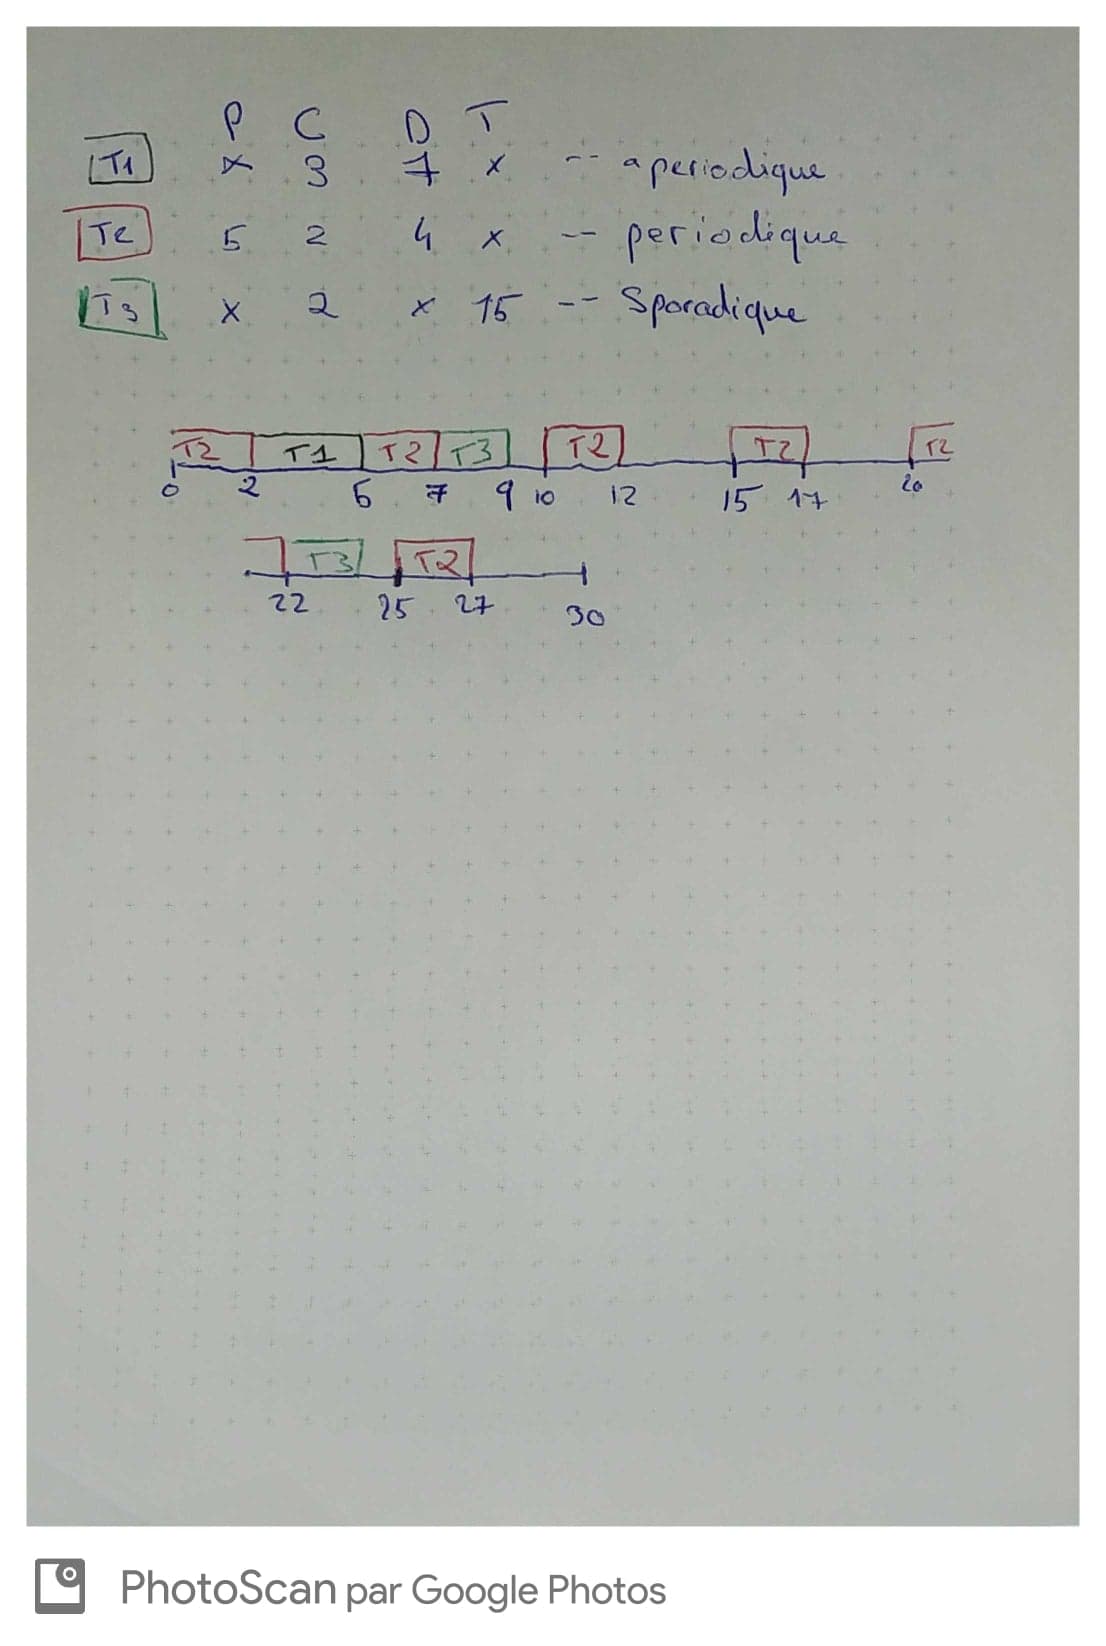 P C D T
T1 x 3 7 x -- aperiodique
T2 5 2 4 x -- periodique
T3 x 2 x 15 -- Sporadique
T2 T1 T2 T3 T2 T2 T2
0 2 5 7 9 10 12 15 17 20
T3 T2
22 25 27 30
PhotoScan par Google Photos